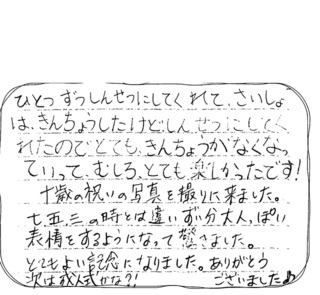 ひとつずつしんせつにしてくれて、さいしょ
は、きんちょうしたけど、しんせつにしてく
れたのでとても、きんちょうがなくなっ
ていって、むしろ、とても楽しかったです!
十歳の祝いの写真を撮りに来ました。
七五、三の時とは違いずい分大人っぽい
表情をするようになって驚きました。
とてもよい記念になりました。ありがとう
次は成人式かな?! ございました♪